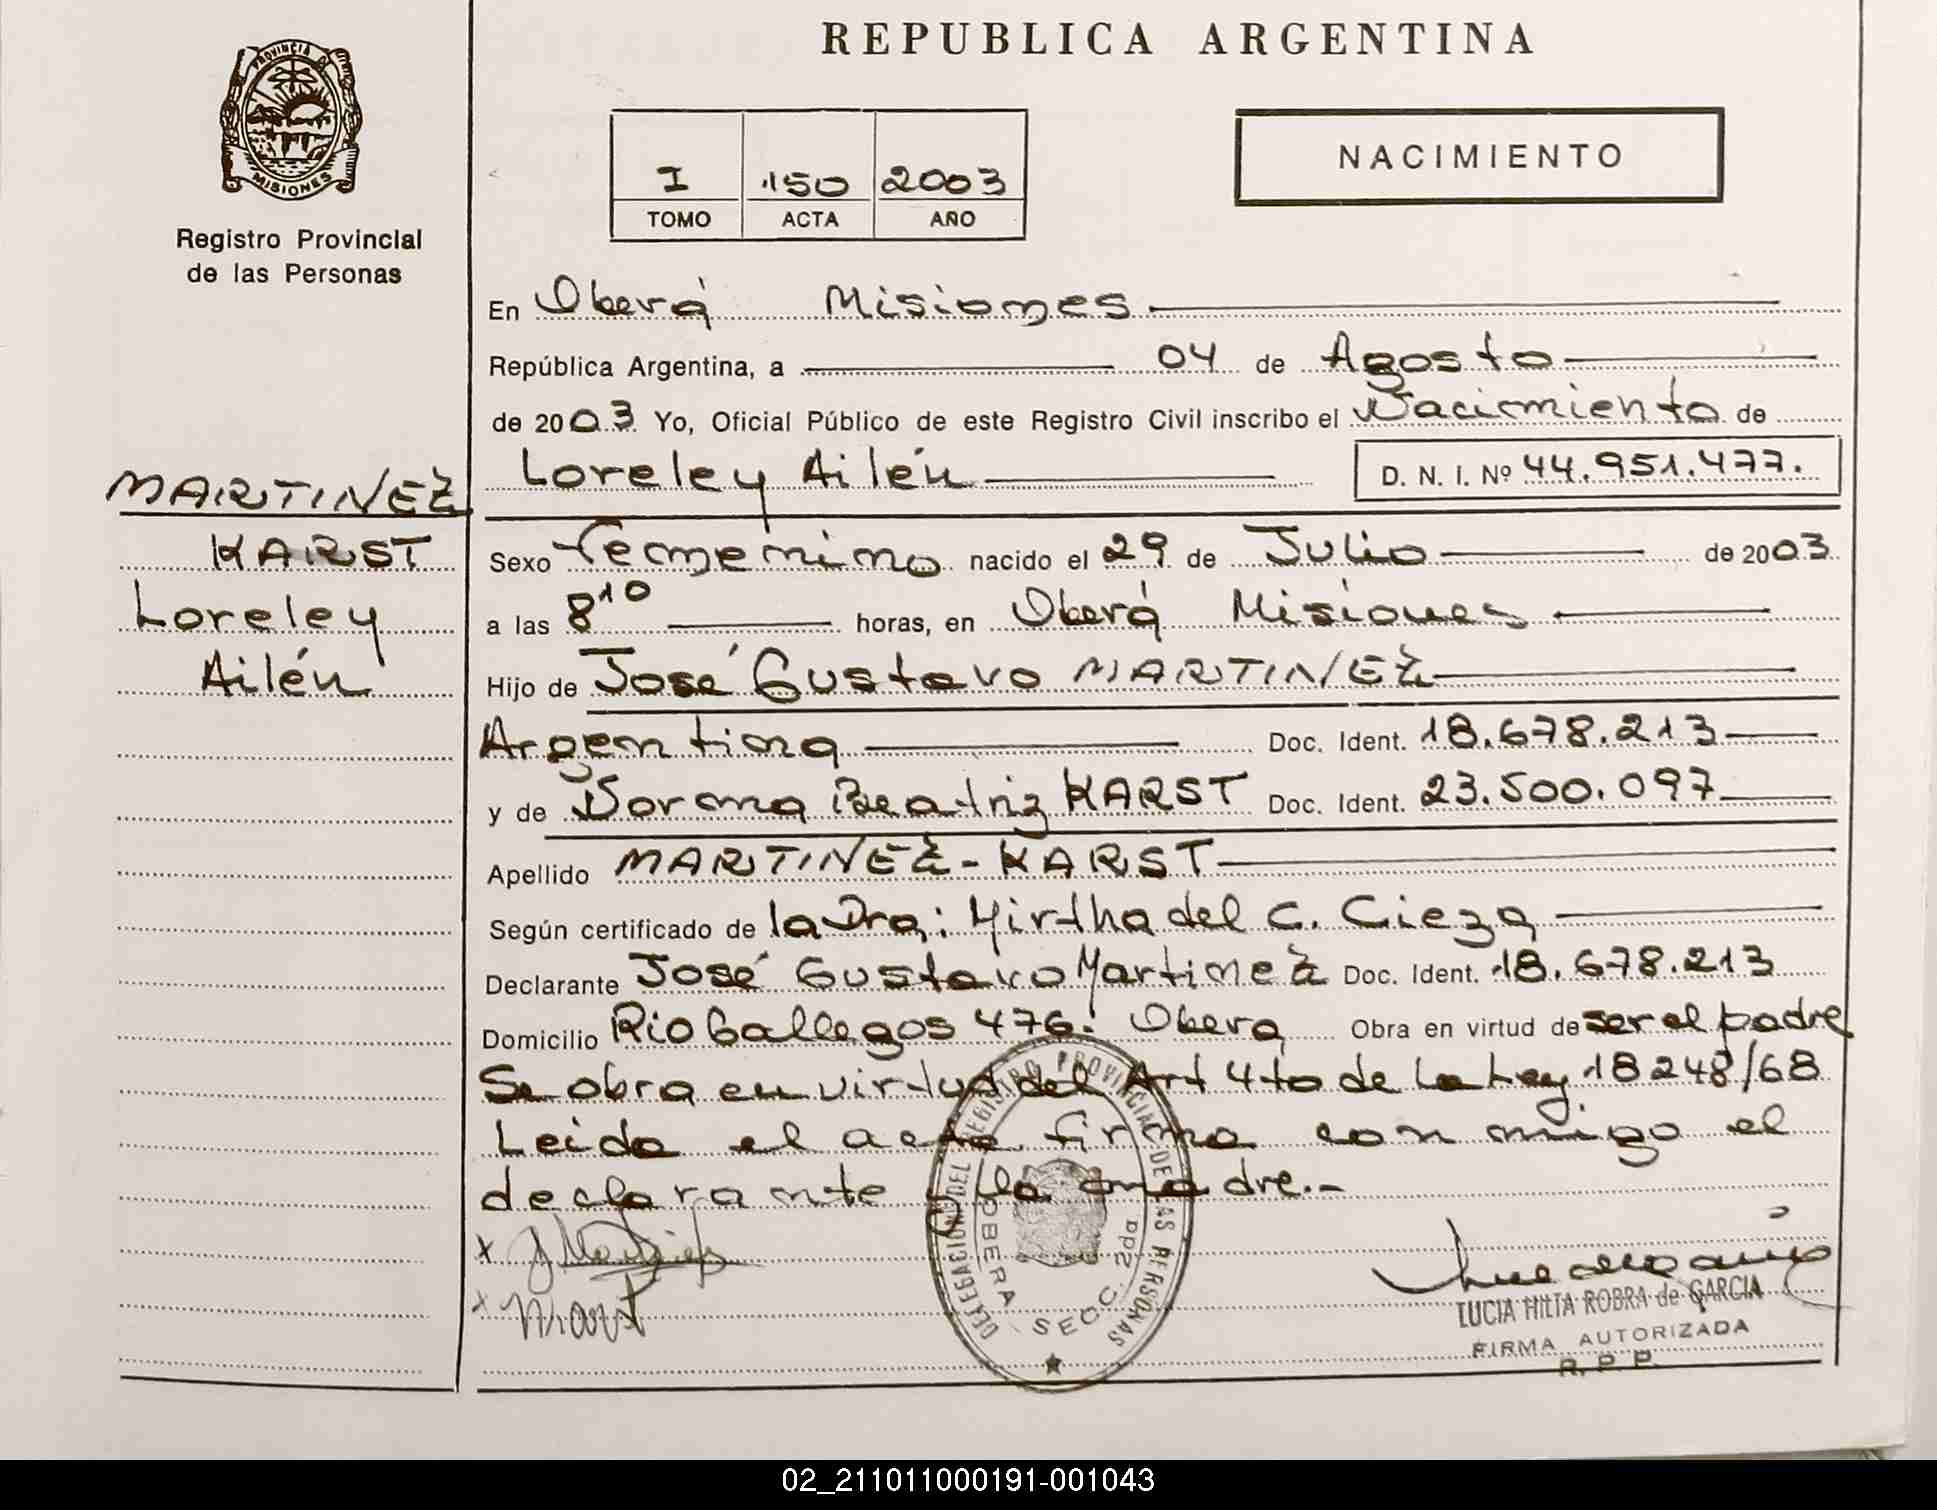 REPUBLICA ARGENTINA
PROVINCIA DE
MISIONES
Registro Provincial
de las Personas
I 150 2003
TOMO ACTA AÑO
NACIMIENTO
En Oberá Misiones
República Argentina, a 04 de Agosto
de 2003 Yo, Oficial Público de este Registro Civil inscribo el Nacimiento de
Loreley Ailén D. N. I. Nº 44.951.477.
MARTINEZ
KARST
Loreley
Ailén
Sexo Femenino nacido el 29 de Julio de 2003
a las 8¹⁰ horas, en Oberá Misiones
Hijo de José Gustavo MARTINEZ
Argentina Doc. Ident. 18.678.213
y de Norma Beatriz KARST Doc. Ident. 23.500.097
Apellido MARTINEZ - KARST
Según certificado de la Dra: Mirtha del C. Cieza
Declarante José Gustavo Martinez Doc. Ident. 18.678.213
Domicilio Rio Gallegos 476. Obera Obra en virtud de ser el padre
Se obra en virtud del Art 4to de la Ley 18248/68
Leida el acta firma conmigo el
declarante y la madre.-
DELEGACION DEL REGISTRO PROVINCIAL DE LAS PERSONAS
OBERA SECC. 2da
LUCIA HILIA ROBRA de GARCIA
FIRMA AUTORIZADA
R. P. P.
02_211011000191-001043